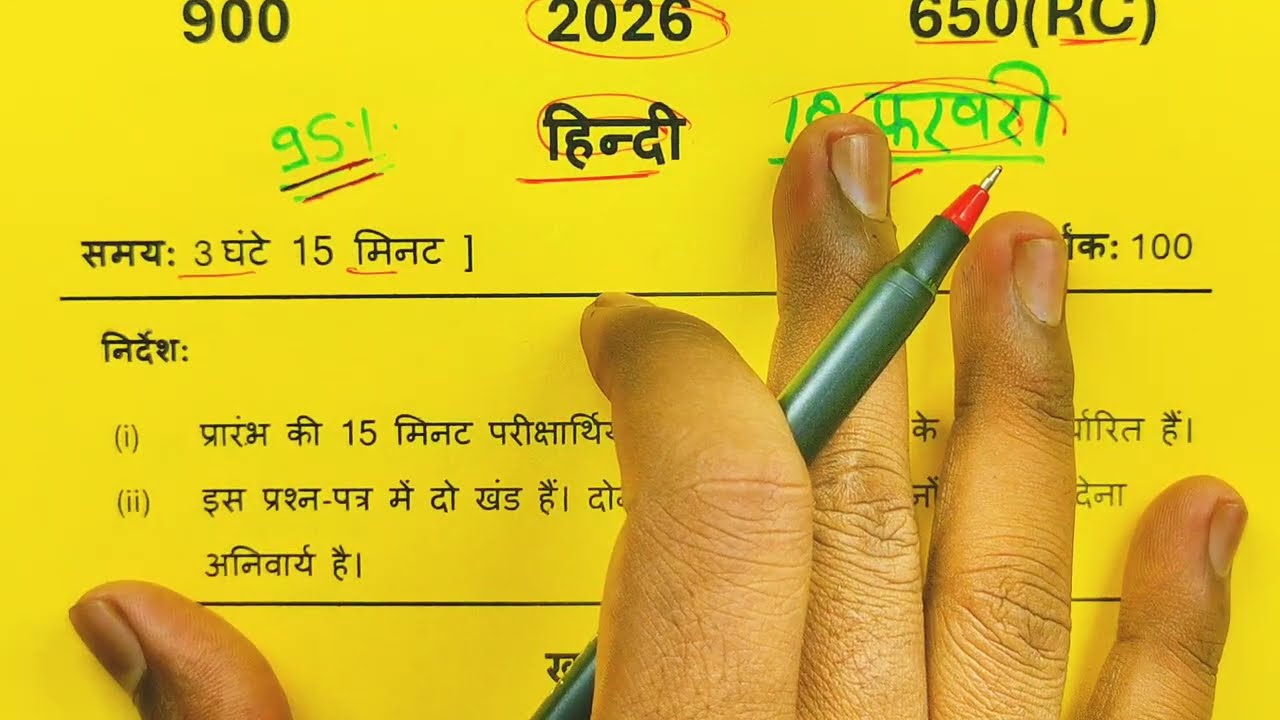 900 2026 650(RC)
95%. हिन्दी 18 फरवरी
समय: 3 घंटे 15 मिनट ] र्णांक: 100
निर्देश:
(i) प्रारंभ की 15 मिनट के हैं।
(ii) इस प्रश्न-पत्र में दो खंड हैं। देना
अनिवार्य है।